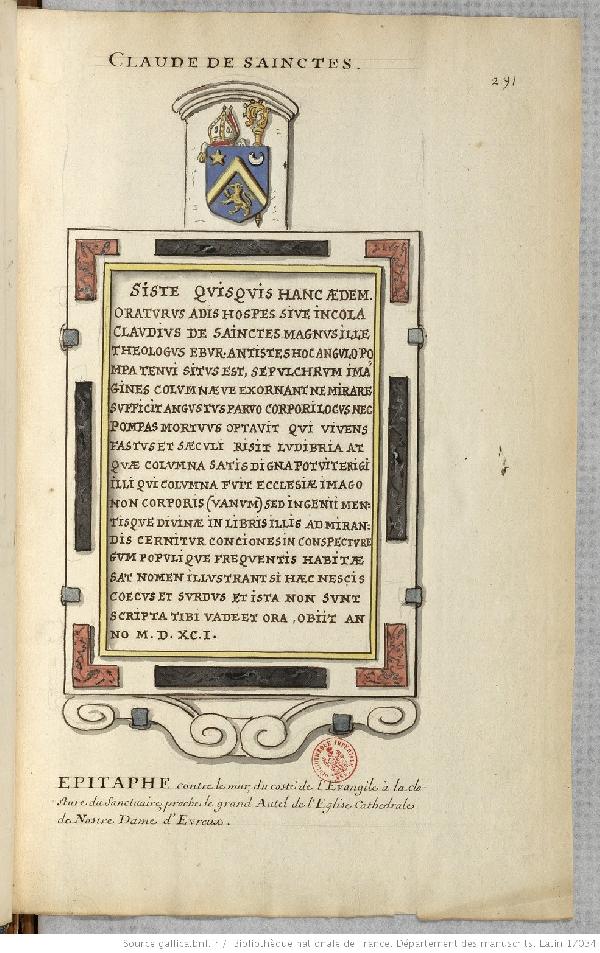 CLAUDE DE SAINCTES.
291
SISTE QVISQVIS HANC ÆDEM.
ORATVRVS ADIS HOSPES SIVE INCOLA
CLAVDIVS DE SAINCTES MAGNVS ILLE
THEOLOGVS EBVR: ANTISTES HOC ANGVLO PO
MPA TENVI SITVS EST, SEPVLCHRVM IMA
GINES COLVMNÆVE EXORNANT NE MIRARE
SVFFICIT ANGVSTVS PARVO CORPORI LOCVS NEC
POMPAS MORTVVS OPTAVIT QVI VIVENS
FASTVS ET SÆCVLI RISIT LVDIBRIA AT
QVÆ COLVMNA SATIS DIGNA POTVIT ERIGI
ILLI QVI COLVMNA FVIT ECCLESIÆ IMAGO
NON CORPORIS (VANVM) SED INGENII MEN-
TISQVE DIVINÆ IN LIBRIS ILLIS ADMIRAN:
DIS CERNITVR CONCIONES IN CONSPECTV RE
GVM POPVLIQVE FREQVENTIS HABITÆ
SAT NOMEN ILLVSTRANT SI HÆC NESCIS
COECVS ET SVRDVS ET ISTA NON SVNT
SCRIPTA TIBI VADE ET ORA, OBIIT AN
NO M. D. XC. I.
EPITAPHE contre le mur, du costé de l'Evangile à la clo-
sture du Sanctuaire, proche le grand Autel de l'Eglise Cathedrale
de Nostre Dame d'Evreux.
Source gallica.bnf.fr / Bibliothèque nationale de France. Département des manuscrits. Latin 17034